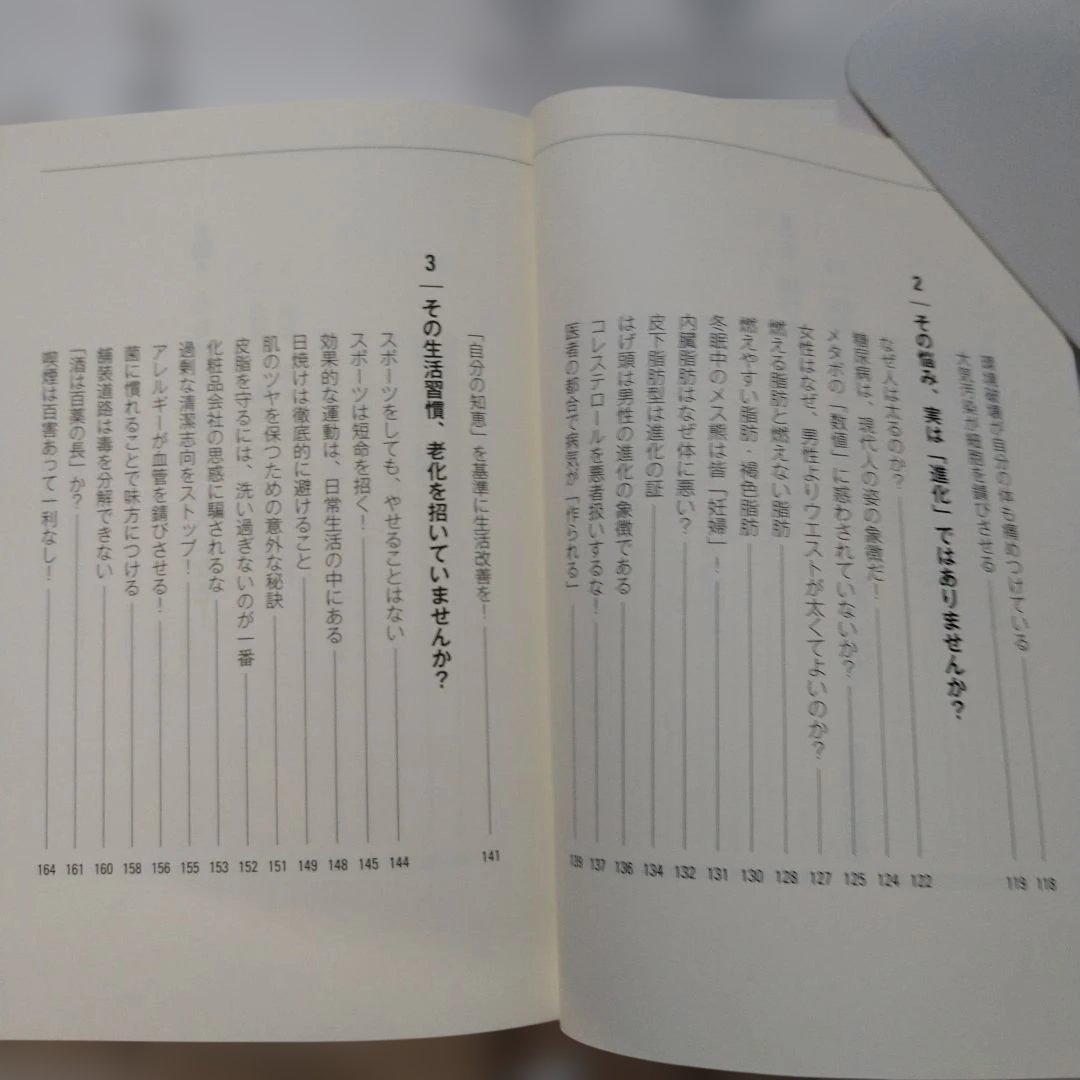 環境破壊が自分の体も痛めつけている 118
大気汚染が細菌を錆びさせる 119
2 その悩み、実は「進化」ではありませんか？
なぜ人は太るのか？ 122
糖尿病は、現代人の姿の象徴だ！ 124
メタボの「数値」に惑わされていないか？ 125
女性はなぜ、男性よりウエストが太くてよいのか？ 127
燃える脂肪と燃えない脂肪 128
燃えやすい脂肪・褐色脂肪 130
冬眠中のメス熊は皆「妊婦」！ 131
内臓脂肪はなぜ体に悪い？ 132
皮下脂肪型は進化の証 134
はげ頭は男性の進化の象徴である 136
コレステロールを悪者扱いするな！ 137
医者の都合で病気が「作られる」 139
「自分の知恵」を基準に生活改善を！ 141
3 その生活習慣、老化を招いていませんか？
スポーツをしても、やせることはない 144
スポーツは短命を招く！ 145
効果的な運動は、日常生活の中にある 148
日焼けは徹底的に避けること 149
肌のツヤを保つための意外な秘訣 151
皮脂を守るには、洗い過ぎないのが一番 152
化粧品会社の思惑に騙されるな 153
過剰な清潔志向をストップ！ 155
アレルギーが血管を錆びさせる！ 156
菌に慣れることで味方につける 158
舗装道路は毒を分解できない 160
「酒は百薬の長」か？ 161
喫煙は百害あって一利なし！ 164